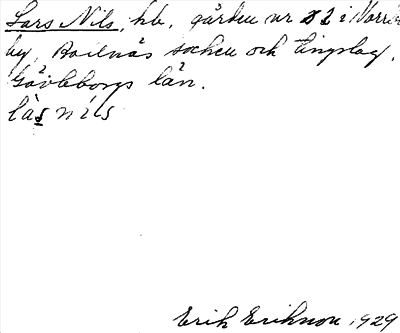 Lars Nils, hb., gården nr 2 i Norr
by, Bollnäs socken och tingslag,
Gävleborgs län.
làs níls
Erik Erikson 1929